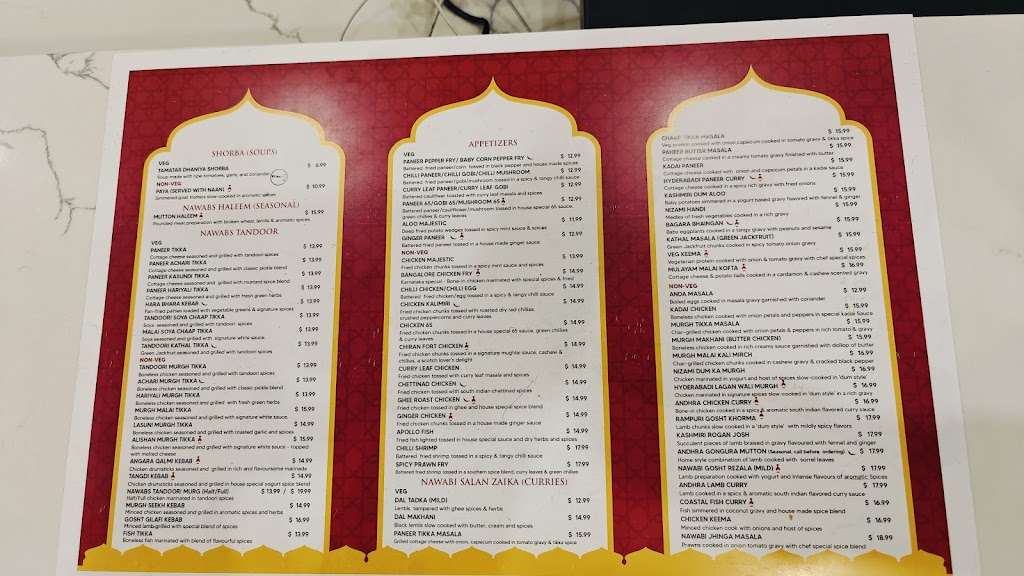 SHORBA (SOUPS)
VEG
TAMATAR DHANIYA SHORBA $ 6.99
Soup made with ripe tomatoes, garlic and coriander
NON-VEG
PAYA (SERVED WITH NAAN) $ 10.99
Simmered goat trotters slow-cooked in aromatic spices
NAWABS HALEEM (SEASONAL)
MUTTON HALEEM $ 15.99
Pounded meat preparation with broken wheat, lentils & aromatic spices
NAWABS TANDOOR
VEG
PANEER TIKKA $ 13.99
Cottage cheese seasoned and grilled with tandoori spices
PANEER ACHARI TIKKA $ 13.99
Cottage cheese seasoned and grilled with classic pickle blend
PANEER KASUNDI TIKKA $ 13.99
Cottage cheese seasoned and grilled with mustard spice blend
PANEER HARIYALI TIKKA $ 13.99
Cottage cheese seasoned and grilled with fresh green herbs
HARA BHARA KEBAB $ 13.99
Pan-fried patties loaded with vegetable greens & signature spices
TANDOORI SOYA CHAAP TIKKA $ 13.99
Soya seasoned and grilled with tandoori spices
MALAI SOYA CHAAP TIKKA $ 13.99
Soya seasoned and grilled with signature white sauce.
TANDOORI KATHAL TIKKA $ 13.99
Green Jackfruit seasoned and grilled with tandoori spices
NON-VEG
TANDOORI MURGH TIKKA $ 13.99
Boneless chicken seasoned and grilled with tandoori spices
ACHARI MURGH TIKKA $ 13.99
Boneless chicken seasoned and grilled with classic pickle blend.
HARIYALI MURGH TIKKA $ 13.99
Boneless chicken seasoned and grilled with fresh green herbs
MURGH MALAI TIKKA $ 15.99
Boneless chicken seasoned and grilled with signature white sauce.
LASUNI MURGH TIKKA $ 14.99
Boneless chicken seasoned and grilled with roasted garlic and spices
ALISHAN MURGH TIKKA $ 15.99
Boneless chicken seasoned and grilled with signature white sauce - topped
with melted cheese
ANGARA QALMI KEBAB $ 14.99
Chicken drumsticks seasoned and grilled in rich and flavoursome marinada
TANGDI KEBAB $ 14.99
Chicken drumsticks seasoned and grilled in house special yogurt spice blend
NAWABS TANDOORI MURG (Half/Full) $ 13.99 / $ 19.99
Half/Full chicken marinated in tandoori spices
MURGH SEEKH KEBAB $ 14.99
Minced chicken seasoned and grilled in aromatic spices and herbs
GOSHT GILAFI KEBAB $ 16.99
Minced lamb grilled with special blend of spices
FISH TIKKA $ 13.99
Boneless fish marinated with blend of flavourful spices
APPETIZERS
VEG
PANEER PEPPER FRY/ BABY CORN PEPPER FRY $ 12.99
Battered fried paneer/corn tossed in black pepper and house made spices
CHILLI PANEER/CHILLI GOBI/CHILLI MUSHROOM $ 12.99
Battered fried paneer/gobi/mushroom tossed in a spicy & tangy chilli sauce
CURRY LEAF PANEER/CURRY LEAF GOBI $ 12.99
Battered cauliflower tossed with curry leaf masala and spices
PANEER 65/GOBI 65/MUSHROOM 65 $ 12.99
Battered paneer/cauliflower/mushroom tossed in house special 65 sauce,
green chillies & curry leaves
ALOO MAJESTIC $ 11.99
Deep fried potato wedges tossed in spicy mint sauce & spices
GINGER PANEER $ 12.99
Battered fried paneer tossed in a house made ginger sauce.
NON-VEG
CHICKEN MAJESTIC $ 13.99
Fried chicken chunks tossed in a spicy mint sauce and spices
BANGALORE CHICKEN FRY $ 14.99
Karnataka special - Bone-in chicken marinated with special spices and fried
CHILLI CHICKEN/CHILLI EGG $ 14.99
Battered fried chicken/egg tossed in a spicy & tangy chilli sauce
CHICKEN KALIMIRI $ 14.99
Fried chicken chunks tossed with roasted dry red chillies,
crushed peppercorns and curry leaves
CHICKEN 65 $ 14.99
Fried chicken chunks tossed in a house special 65 sauce, green chillies
& curry leaves
CHIRAN FORT CHICKEN $ 14.99
Fried chicken chunks tossed in a signature mughlai sauce, cashew &
chillies, a scotch lover's delight
CURRY LEAF CHICKEN $ 14.99
Fried chicken tossed with curry leaf masala and spices
CHETTINAD CHICKEN $ 14.99
Fried chicken tossed with south indian chettinad spices
GHEE ROAST CHICKEN $ 14.99
Fried chicken tossed in ghee and house special spice blend
GINGER CHICKEN $ 14.99
Fried chicken chunks tossed in a house made ginger sauce
APOLLO FISH $ 14.99
Fried fish lighted tossed in house special sauce and dry herbs and spices
CHILLI SHRIMP $ 17.99
Battered fried shrimp tossed in a spicy & tangy chilli sauce
SPICY PRAWN FRY $ 17.99
Battered fried shrimp tossed in a southern spice blend, curry leaves & green chillies
NAWABI SALAN ZAIKA (CURRIES)
VEG
DAL TADKA (MILD) $ 12.99
Lentils tempered with ghee spices & herbs
DAL MAKHANI $ 14.99
Black lentils slow cooked with butter, cream and spices
PANEER TIKKA MASALA $ 15.99
Grilled cottage cheese with onion, capsicum cooked in tomato gravy & tikka spice
CHAAP TIKKA MASALA $ 15.99
Veg protein cooked with onion,capsicum cooked in tomato gravy & tikka spice
PANEER BUTTER MASALA $ 15.99
Cottage cheese cooked in a creamy tomato gravy finished with butter
KADAI PANEER $ 15.99
Cottage cheese cooked with onion and capsicum petals in a kadai sauce
HYDERABADI PANEER CURRY $ 15.99
Cottage cheese cooked in a spicy rich gravy with fried onions
KASHMIRI DUM ALOO $ 15.99
Baby potatoes simmered in a yogurt based gravy flavored with fennel & ginger
NIZAMI HANDI $ 15.99
Medley of fresh vegetables cooked in a rich gravy
BAGARA BHAINGAN $ 15.99
Baby eggplants cooked in a tangy gravy with peanuts and sesame
KATHAL MASALA (GREEN JACKFRUIT) $ 15.99
Green Jackfruit chunks cooked in spicy tomato onion gravy
VEG KEEMA $ 15.99
Vegetarian protein cooked with onion & tomato gravy with chef special spices
MULAYAM MALAI KOFTA $ 16.99
Cottage cheese & potato balls cooked in a cardamon & cashew scented gravy
NON-VEG
ANDA MASALA $ 12.99
Boiled eggs cooked in masala gravy garnished with coriander
KADAI CHICKEN $ 15.99
Boneless chicken cooked with onion petals and peppers in special kadai Sauce
MURGH TIKKA MASALA $ 15.99
Char-grilled chicken cooked with onion petals & peppers in rich tomato & gravy
MURGH MAKHANI (BUTTER CHICKEN) $ 15.99
Boneless chicken cooked in rich creamy sauce garnished with dollop of butter
MURGH MALAI KALI MIRCH $ 16.99
Char-grilled chicken chunks cooked in cashew gravy & cracked black pepper
NIZAMI DUM KA MURGH $ 16.99
Chicken marinated in yogurt and host of spices slow-cooked in 'dum style'
HYDERABADI LAGAN WALI MURGH $ 16.99
Chicken marinated in signature spices slow-cooked in 'dum style' in a rich gravy
ANDHRA CHICKEN CURRY $ 16.99
Bone-in chicken cooked in a spicy & aromatic south indian flavored curry sauce
RAMPURI GOSHT KHORMA $ 17.99
Lamb chunks slow cooked in a 'dum style' with mildly spicy flavors
KASHMIRI ROGAN JOSH $ 17.99
Succulent pieces of lamb braised in gravy flavoured with fennel and ginger
ANDHRA GONGURA MUTTON (Seasonal, call before ordering) $ 17.99
Home style combination of lamb cooked with sorrel leaves
NAWABI GOSHT REZALA (MILD) $ 17.99
Lamb preparation cooked with yogurt and intense flavours of aromatic Spices
ANDHRA LAMB CURRY $ 17.99
Lamb cooked in a spicy & aromatic south indian flavored curry sauce
COASTAL FISH CURRY $ 16.99
Fish simmered in coconut gravy and house made spice blend
CHICKEN KEEMA $ 16.99
Minced chicken cook with onions and host of spices
NAWABI JHINGA MASALA $ 18.99
Prawns cooked in onion tomato gravy with chef special spice blend